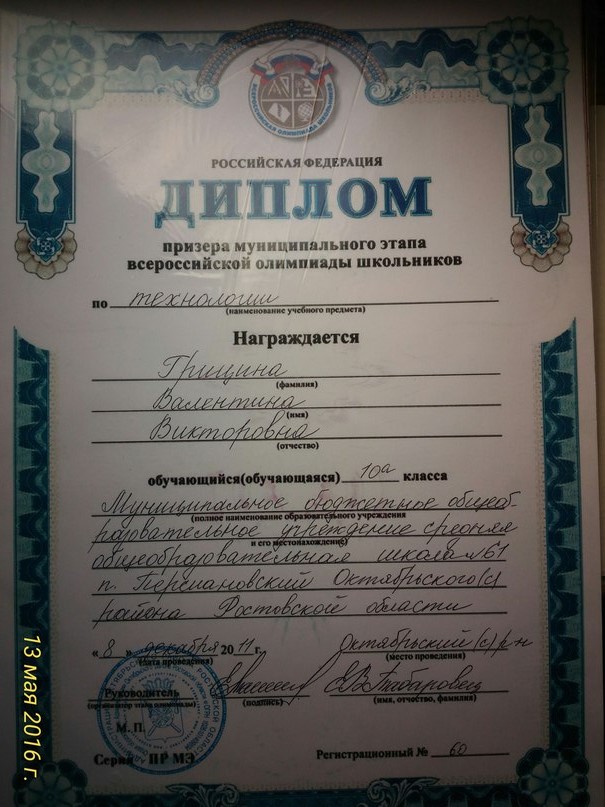 ВСЕРОССИЙСКАЯ ОЛИМПИАДА ШКОЛЬНИКОВ
РОССИЙСКАЯ ФЕДЕРАЦИЯ
ДИПЛОМ
призера муниципального этапа
всероссийской олимпиады школьников
по технологии
(наименование учебного предмета)
Награждается
Грицина
(фамилия)
Валентина
(имя)
Викторовна
(отчество)
обучающийся(обучающаяся) 10а класса
Муниципальное бюджетное общеоб-
(полное наименование образовательного учреждения
разовательное учреждение средняя
и его местонахождение)
общеобразовательная школа №61
п. Персиановский Октябрьского(с)
района Ростовской области
« 8 » декабря 2011 г. Октябрьский(с) р-н
(дата проведения) (место проведения)
Руководитель Е.В. Табаровец
(организатор этапа олимпиады) (подпись) (имя, отчество, фамилия)
М. П.
Серия ПР МЭ Регистрационный № 60
13 мая 2016 г.